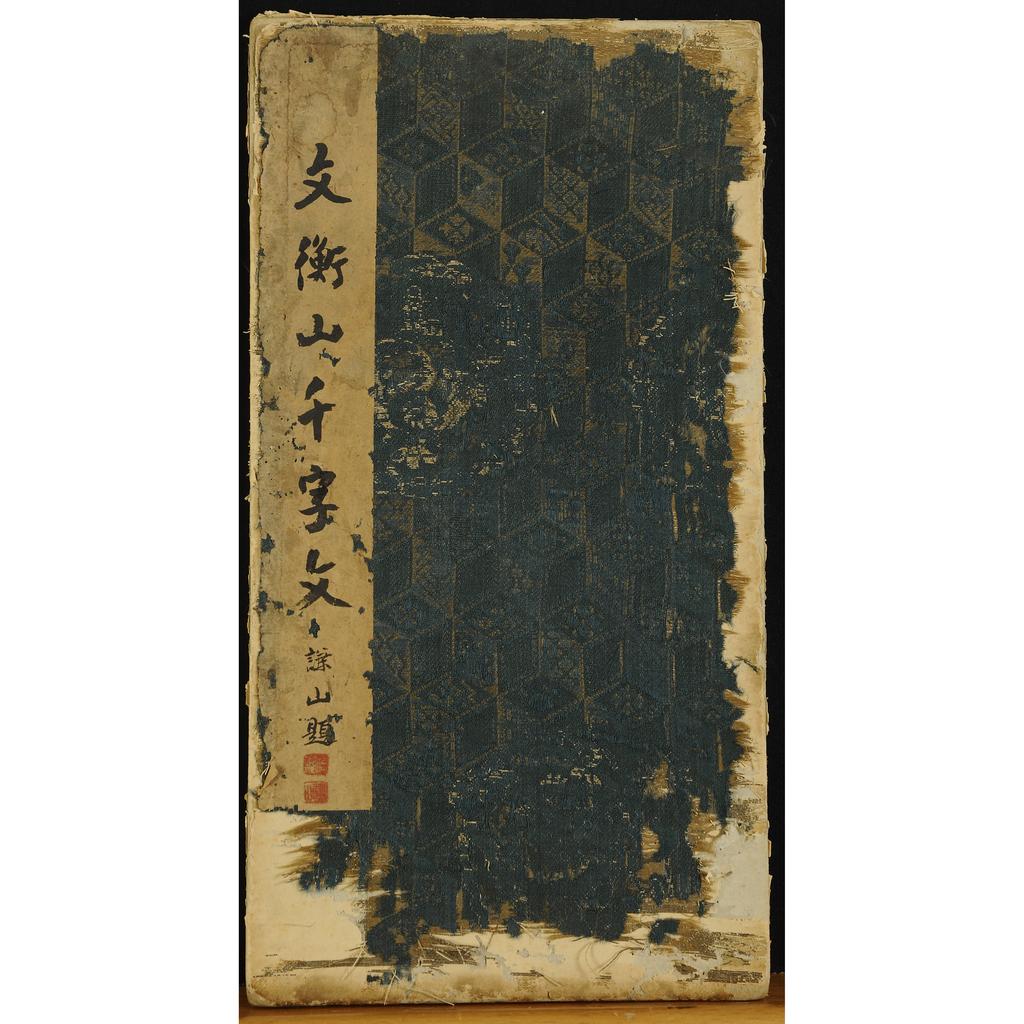 文衡山千字文
謙山題